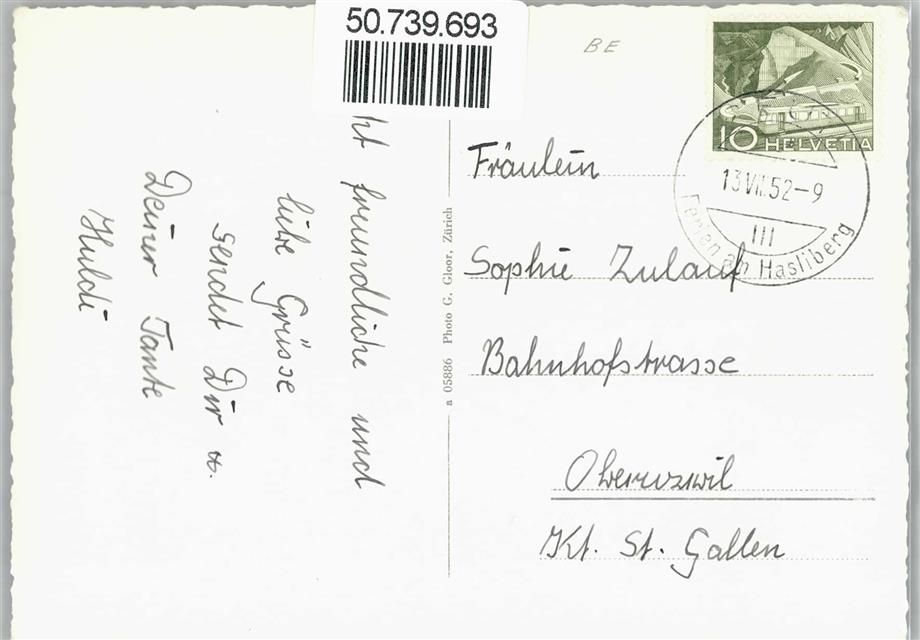 50.739.693
BE
10 HELVETIA
13.VII.52-9
III
Ferien am Hasliberg
freundliche und
liebe Grüsse
sendet Dir u.
Deiner Tante
Huldi
a 05886 Photo G. Gloor, Zürich
Fräulein
Sophie Zulauf
Bahnhofstrasse
Oberuzwil
Kt. St. Gallen